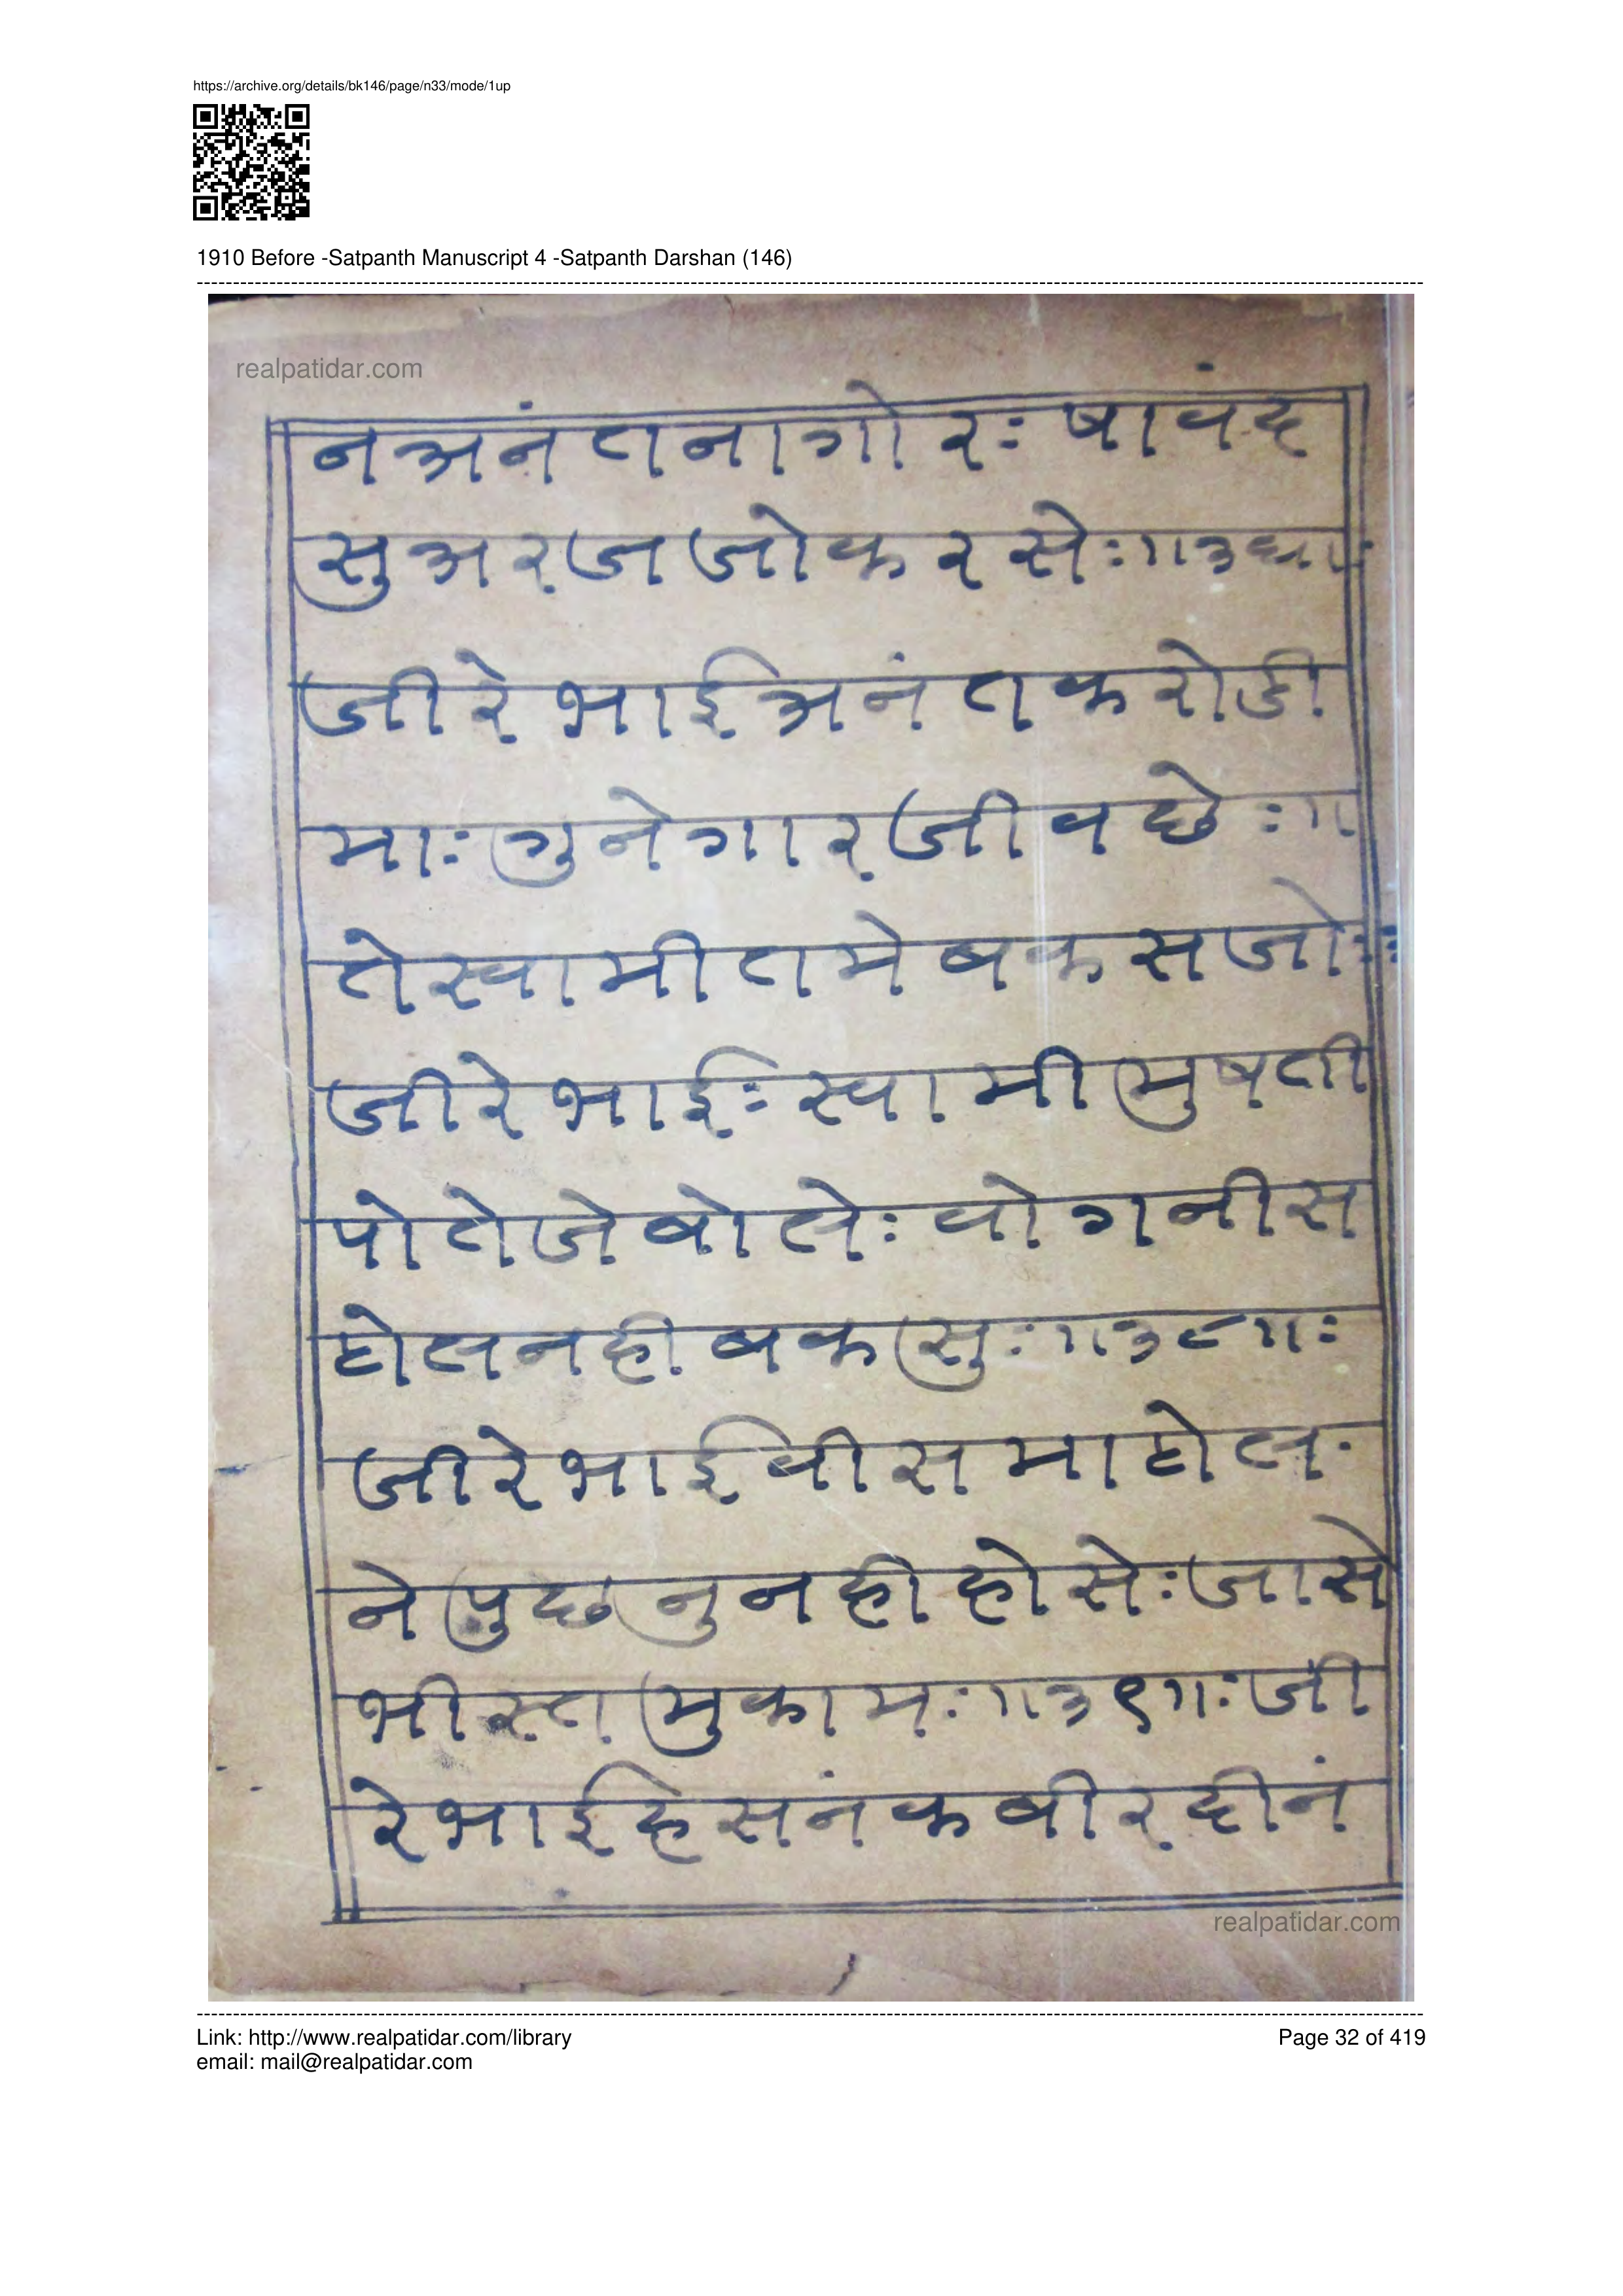 https://archive.org/details/bk146/page/n33/mode/1up
1910 Before -Satpanth Manuscript 4 -Satpanth Darshan (146)
realpatidar.com
नअनंतनागोरः षावंद
सुअरजजोकरसेः॥
जीरेभाईअनंतकरोडी
माः गुनेगारजीवछेः॥
तेस्वामीतमेबकसजोः
जीरेभाईः स्वामीमुषती
पोतेजेबोलेः वोगनीस
होलनहीबकसुः॥३८॥ः
जीरेभाईवीसमाहोल
नेपुछनुनहीहोसेः जासे
भीस्तमुकामः॥३९॥ः जी
रेभाईहसनंकबीरदीनं
realpatidar.com
Link: http://www.realpatidar.com/library
Page 32 of 419
email: mail@realpatidar.com